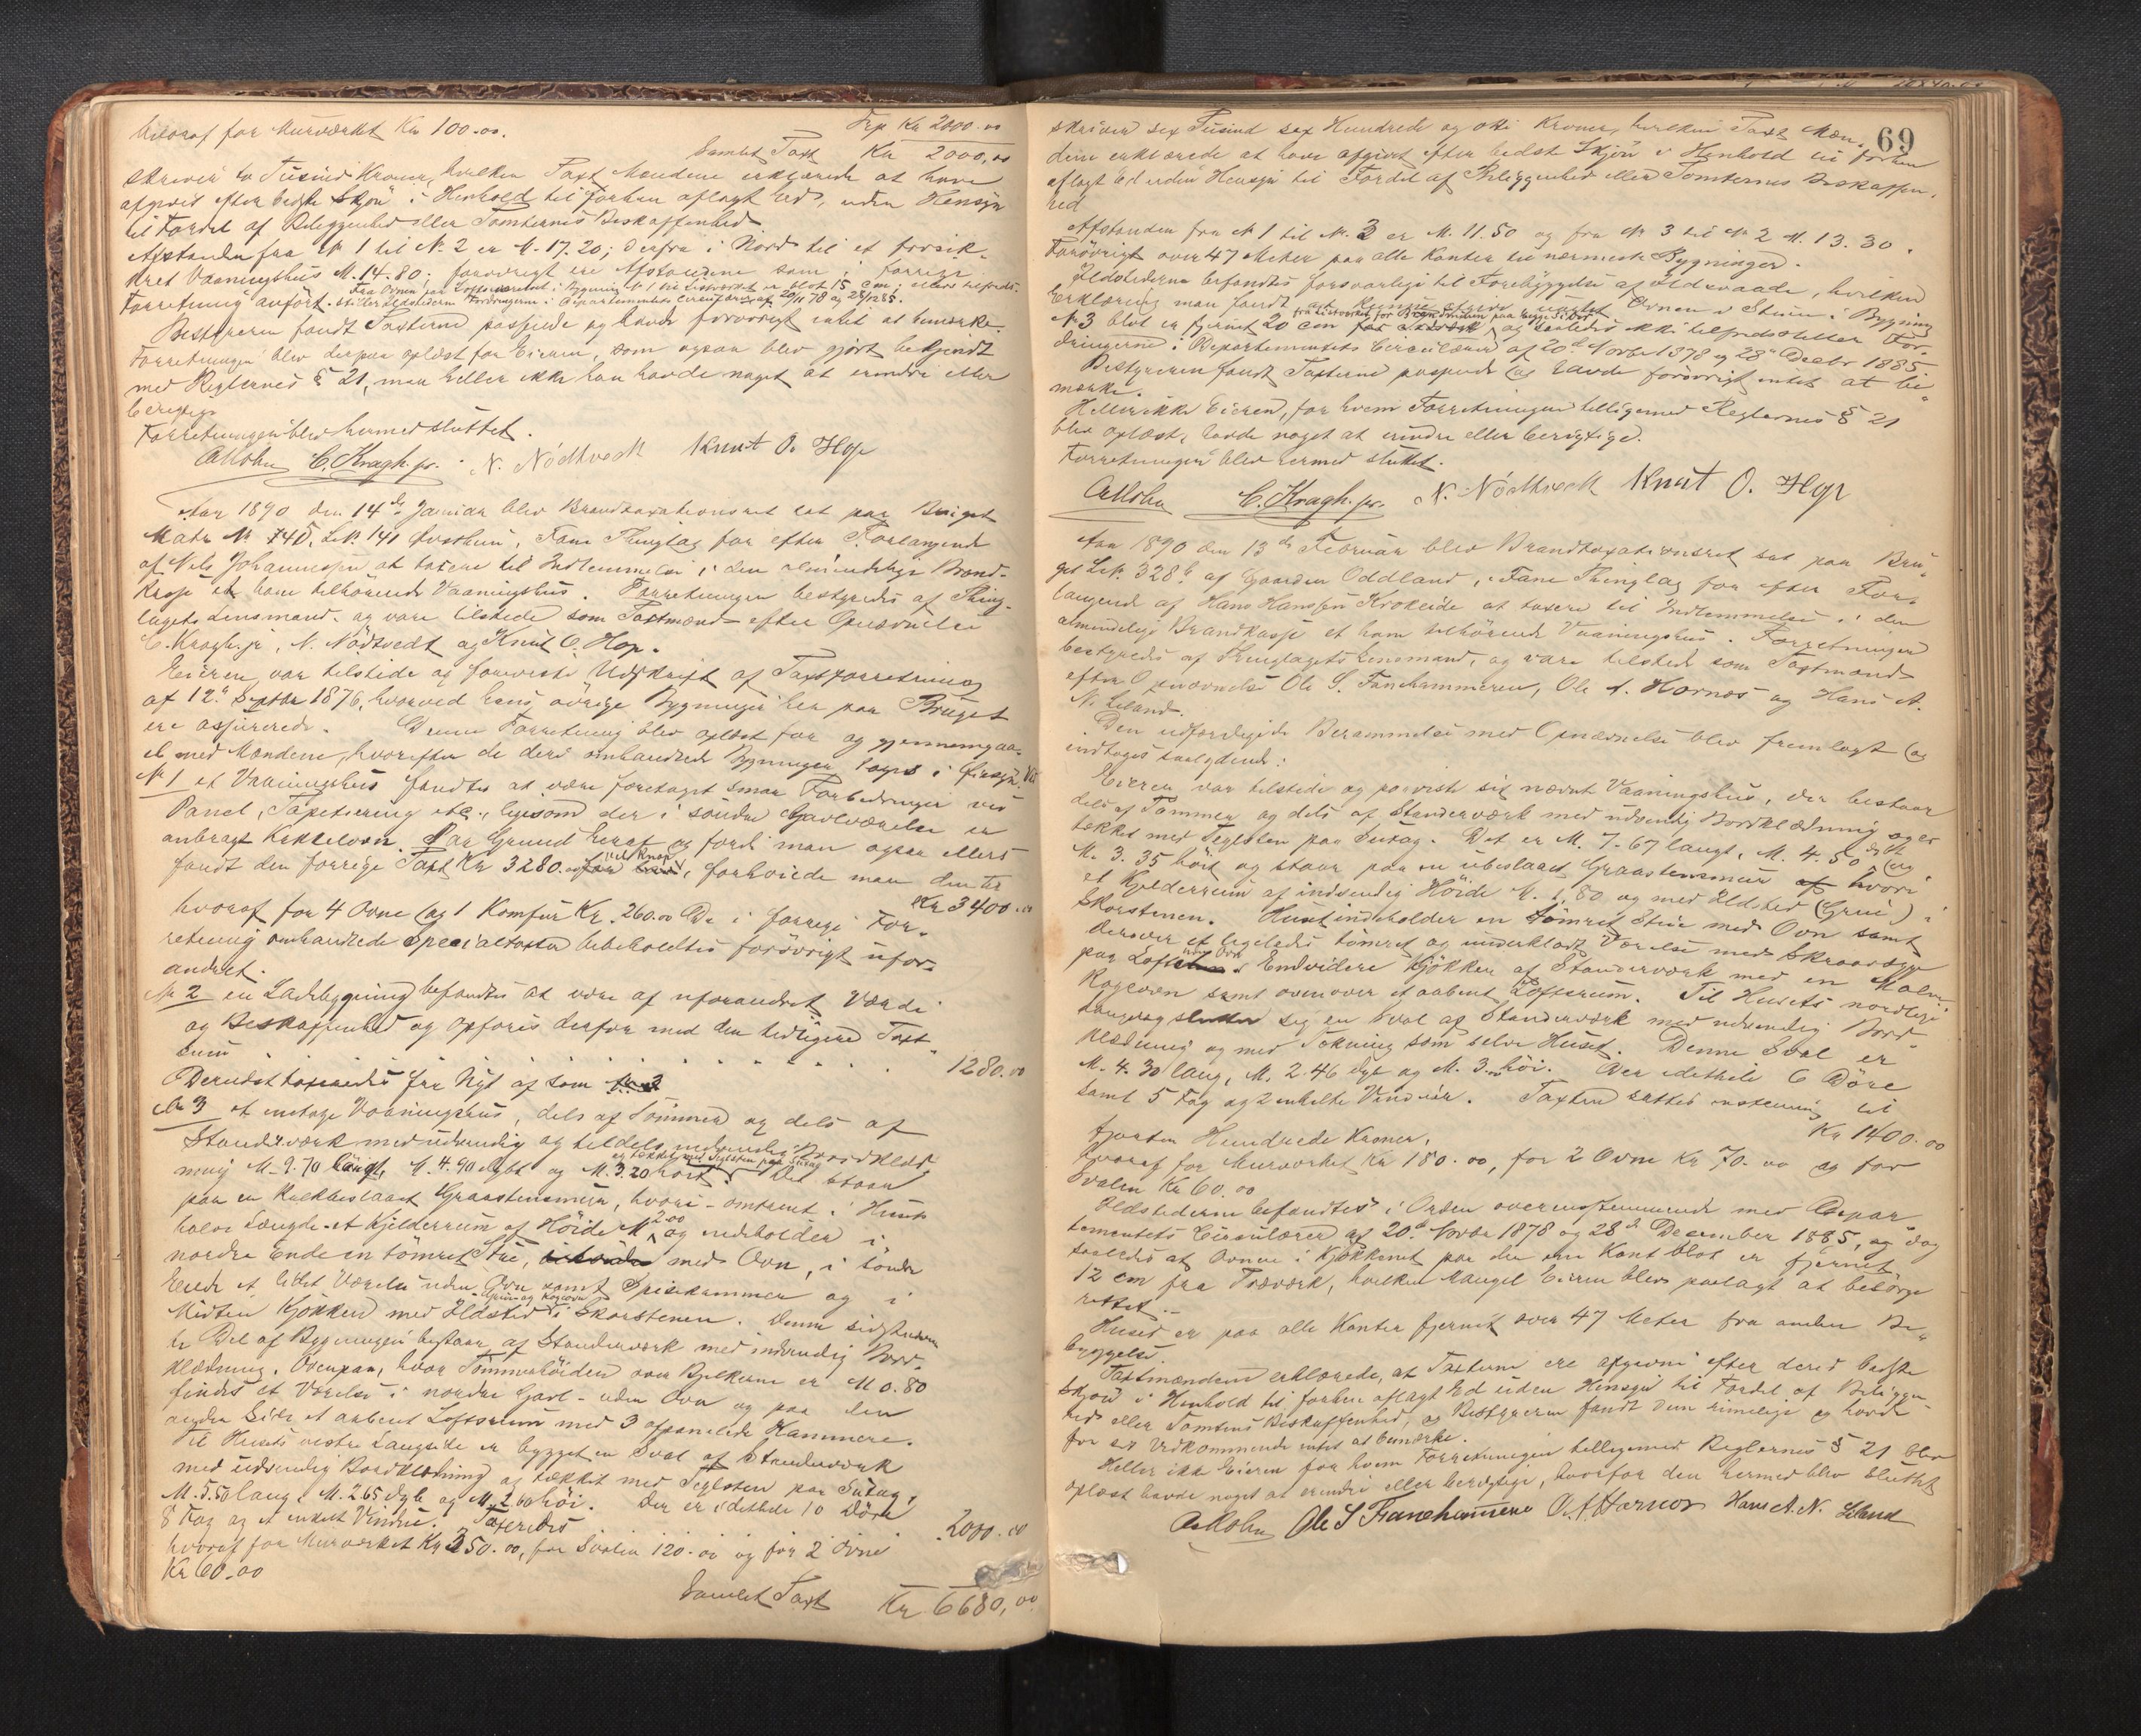 hvoraf for Murværket Kr 100.00.
Trp Kr 2000.00
Samlet Taxt Kr 2000,00
skriver to Tusind Kroner, hvilken Taxt Mændene erklærede at have
afgivet efter bedste Skjøn i Henhold til forhen aflagt Ed, uden Hensyn
til Fordel af Beliggenhed eller Tomternes Beskaffenhed
Afstanden fra № 1 til № 2 er M. 17.20; derfra i Nord til et forsik-
kret Vaaningshus M. 14.80; forøvrigt ere Afstandene som i forrige
Forretning anført. Fra Ovnen paa Loftsværelset i Bygning № 1 til Træværket er blot 15 cm; ellers tilfreds-
stiller Ildstederne Fordringerne i Departementets Circulærer af 20/11 78 og 28/12 85.
Bestyreren fandt Taxterne passende og havde forøvrigt intet at bemærke.
Forretningen blev derpaa oplæst for Eieren, som ogsaa blev gjort bekjendt
med Reglernes § 21, men heller ikke han havde noget at erindre eller
berigtige.
Forretningen blev hermed sluttet.
C. Kragh. jr. N. Nödtvedt Knut O. Hop
Aar 1890 den 14de Januar blev Brandtaxationsret sat paa Bruget
Matr № 74b, L.№ 141 Øvsthun, Fane Thinglag for efter Forlangende
af Nils Johannessen at taxere til Indlemmelse i den almindelige Brand-
kasse et ham tilhörende Vaaningshus. Forretningen bestyredes af Thing-
lagets Lensmand og vare tilstede som Taxtmænd efter Opnævnelse
C. Kragh. jr, N. Nödtvedt og Knut O. Hop.
Eieren var tilstede og foreviste Udskrift af Taxtforretning
af 12te Septbr 1876, hvorved hans övrige Bygninger her paa Bruget
ere assurerede. Denne Forretning blev oplæst for og gjennemgaa-
et med Mændene, hvorefter de deri omhandlede Bygninger toges i Øiesyn. Ved
№ 1 et Vaaningshus fandtes at være foretaget smaa Forbedringer ved
Panel, Tapetsering etc., ligesom der i søndre Gavlværelse er
anbragt Kakkelovn. Paa Grund heraf og fordi man ogsaa ellers
fandt den forrige Taxt Kr 3280.00 vel knap, forhøiede man den til
Kr 3400.00
hvoraf for 4 Ovne og 1 Komfur Kr. 260.00 De i forrige For-
retning omhandlede Specialtaxter bibeholdtes forøvrigt ufor-
andret.
№ 2 en Ladebygning befandtes at være af uforandret Værdi
og Beskaffenhed og opføres derfor med den tidligere Taxt-
sum . . . . . . . . 1280.00
Derudst taxeredes før Nyt af som № 3
№ 3 et enetage Vaaningshus, dels af Tømmer og dels af
Standerværk med udvendig og tildels indvendig Bordklæd-
ning M. 9.70 langt, M. 4.90 dybt og M. 3.20 höit er tækket med Teglsten paa Sutag. Det staar
paa en kalkbeslaaet Graastensmur, hvori - omtrent i Husets
halve Længde - et Kjelderrum af Höide M 2.00 og indeholder i
nordre Ende en tömret Stue, med Ovn, i söndre
Ende et lidet Værelse uden Ovn samt Spisekammer og i
Midten Kjökken med Ildsted Grue og Kogeovn i Skorstenen. Denne sidstnævn-
te Del af Bygningen bestaar af Standerværk med indvendig Bord-
klædning. Ovenpaa, hvor Tømmerhöiden over Bjelkerne er M 0.80
findes et Værelse i nordre Gavl - uden Ovn og paa den
anden Side et aabent Loftsrum med 3 afpanelede Kammere.
Til Husets vestre Langside er bygget en Sval af Standerværk
med udvendig Bordklædning og tækket med Teglsten paa Sutag,
M. 5.50 lang, M. 2.65 dyb og M. 2.60 höi. Der er idethele 10 Döre
8 Fag og et enkelt Vindue. Taxeredes 2000.00
hvoraf for Murværket Kr 250.00, for Svalen 120.00 og for 2 Ovne
Kr 60.00
Samlet Taxt Kr 6680,00
69
skriver sex Tusind sex Hundrede og otti Kroner, hvilken Taxt Mæn-
dene erklærede at have afgivet efter bedste Skjön i Henhold til forhen
aflagt Ed uden Hensyn til Fordel af Beliggenhed eller Tomternes Beskaffen-
hed
Afstanden fra № 1 til № 3 er M. 11.50 og fra № 3 til № 2 M. 13.30.
Forövrigt over 47 Meter paa alle Kanter til nærmeste Bygninger.
Ildstederne befandtes forsvarlige til Forebyggelse af Ildsvaade, hvilken
Erklæring man fandt at kunne afgive uagtet Ovnen i Stuen i Bygning
№ 3 blot er fjernet 20 cm fra Træværket og saaledes ikke tilfredsstiller For-
dringerne i Departementets Circulærer af 20de Novbr 1878 og 28de Decbr 1885.
Bestyreren fandt Taxterne passende og havde forövrigt intet at be-
mærke.
Heller ikke Eieren, for hvem Forretningen tilligemed Reglernes § 21
blev oplæst, havde noget at erindre eller berigtige.
Forretningen blev hermed sluttet.
C. Kragh. jr. N. Nödtvedt Knut O. Hop
Aar 1890 den 13de Februar blev Brandtaxationsret sat paa Bru-
get L.№ 328b af Gaarden Oddland, i Fane Thinglag for efter For-
langende af Hans Hanssen Krokeide at taxere til Indlemmelse i den
almindelige Brandkasse et ham tilhörende Vaaningshus. Forretningen
bestyredes af Thinglagets Lensmand, og vare tilstede som Taxtmænd
efter Opnævnelse Ole S. Fanehammeren, Ole A. Hornæs og Hans A.
N. Liland.
Den udfærdigede Berammelse med Opnævnelse blev fremlagt og
indtages saalydende:
Eieren var tilstede og paaviste sig nævnt Vaaningshus, der bestaar
dels af Tømmer og dels af Standerværk med udvendig Bordklædning og er
tækket med Teglsten paa Sutag. Det er M. 7.67 langt, M. 4.50 dybt og
M. 3.35 höit og staar paa en ubeslaaet Graastensmur hvori
et Kjelderrum af indvendig Höide M. 1.80 og med Ildsted (Grue) i
Skorstenen. Huset indeholder en tömret Stue med Ovn samt
derover et ligeledes tömret og underklædt Værelse med Skraavægge
paa Loftet uden Ovn. Endvidere Kjökken af Standerværk med en
Kogeovn samt ovenover et aabent Loftsrum. Til Husets nordlige
Langvæg slutter sig en Sval af Standerværk med udvendig Bord-
klædning og med Tækning som selve Huset. Denne Sval er
M. 4.30 lang, M. 2.46 dyb og M. 3.00 höi. Der idethele 6 Döre
samt 5 Fag og 2 enkelte Vinduer. Taxten sattes enstemmig til
Kr 1400.00
fjorten Hundrede Kroner,
hvoraf for Murværket Kr 180.00, for 2 Ovne Kr 70.00 og for
Svalen Kr 60.00
Ildstederne befandtes i Orden overensstemmende med Depar-
tementets Circulærer af 20de Novbr 1878 og 28de December 1885, og dog
saaledes at Ovnen i Kjøkkenet paa den ene Kant blot er fjernet
12 cm fra Træværk, hvilken Mangel Eieren blev paalagt at besørge
rettet.
Huset er paa alle Kanter fjernet over 47 Meter fra anden Be-
byggelse.
Taxtmændene erklærede, at Taxterne ere afgivne efter deres bedste
Skjøn i Henhold til forhen aflagt Ed uden Hensyn til Fordel af Beliggen-
hed eller Tomtens Beskaffenhed, og Bestyreren fandt dem rimelige og havde
for sit Vedkommende intet at bemærke.
Heller ikke Eieren for hvem Forretningen tilligemed Reglernes § 21 blev
oplæst havde noget at erindre eller berigtige, hvorfor den hermed blev sluttet
Ole S Fanehammeren O. A Hornæs Hans A. N. Liland